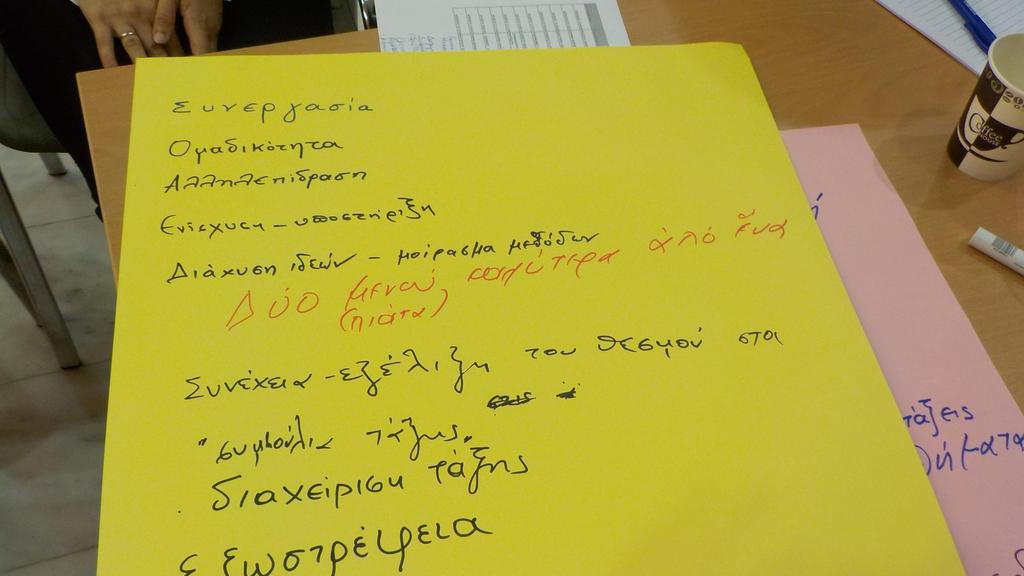 Συνεργασία
Ομαδικότητα
Αλληλεπίδραση
Ενίσχυση - υποστήριξη
Διάχυση ιδεών - μοίρασμα μεθόδων
Δύο μενού, καλύτερα από ἕνα
(πιάτα)
Συνέχεια - εξέλιξη του θεσμού στα
"συμβούλια τάξης"
διαχείριση τάξης
Εξωστρέφεια
τάξεις
Coffee